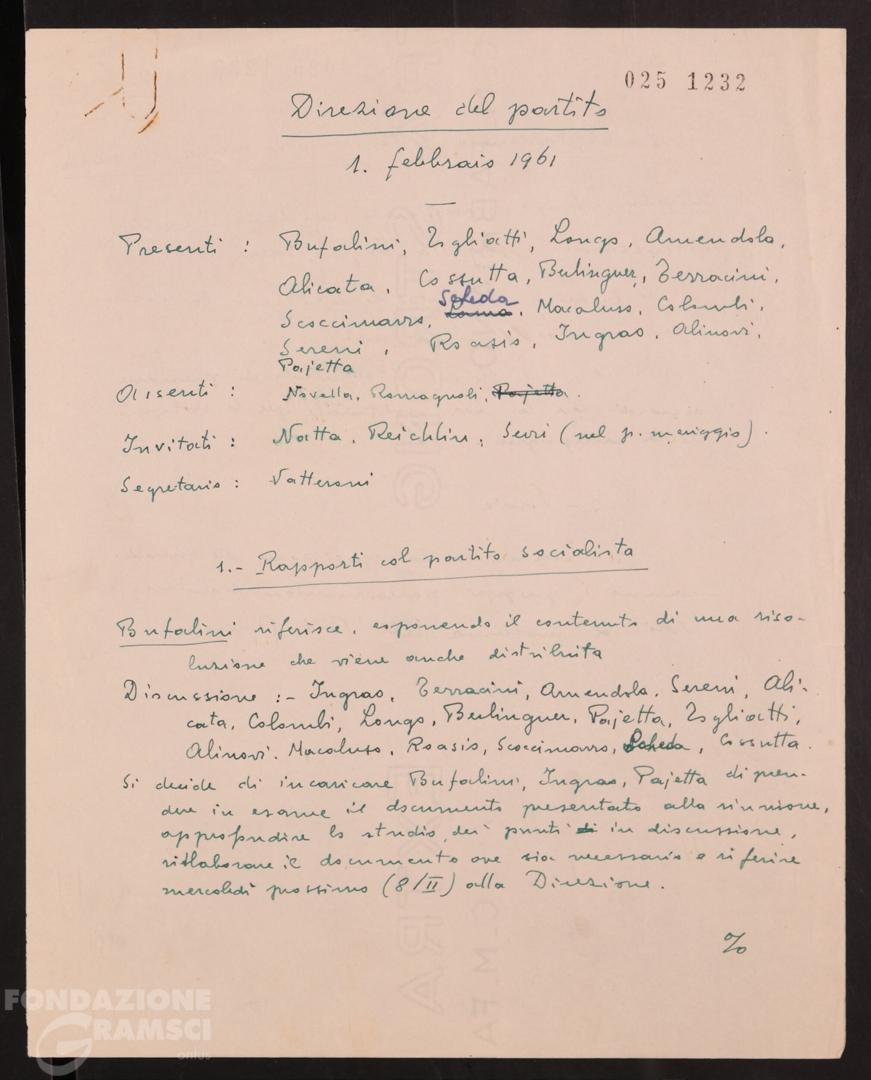 025 1232
Direzione del partito
1. febbraio 1961
Presenti : Bufalini, Togliatti, Longo, Amendola,
Alicata, Cossutta, Berlinguer, Terracini,
Scheda
Scoccimarro, Lama, Macaluso, Colombi,
Sereni, Roasio, Ingrao, Alinovi,
Pajetta
Assenti : Novella, Romagnoli, Pajetta.
Invitati : Natta, Reichlin, Seroni (nel p. meriggio).
Segretario : Vatteroni
1.- Rapporti col partito socialista
Bufalini riferisce, esponendo il contenuto di una riso-
luzione che viene anche distribuita
Discussione :- Ingrao, Terracini, Amendola, Sereni, Ali-
cata, Colombi, Longo, Berlinguer, Pajetta, Togliatti,
Alinovi, Macaluso, Roasio, Scoccimarro, Scheda, Cossutta.
Si decide di incaricare Bufalini, Ingrao, Pajetta di pren-
dere in esame il documento presentato alla riunione,
approfondire lo studio dei punti di in discussione,
rielaborare il documento ove sia necessario e riferire
mercoledì prossimo (8/II) alla Direzione.
%
FONDAZIONE
GRAMSCI
onlus